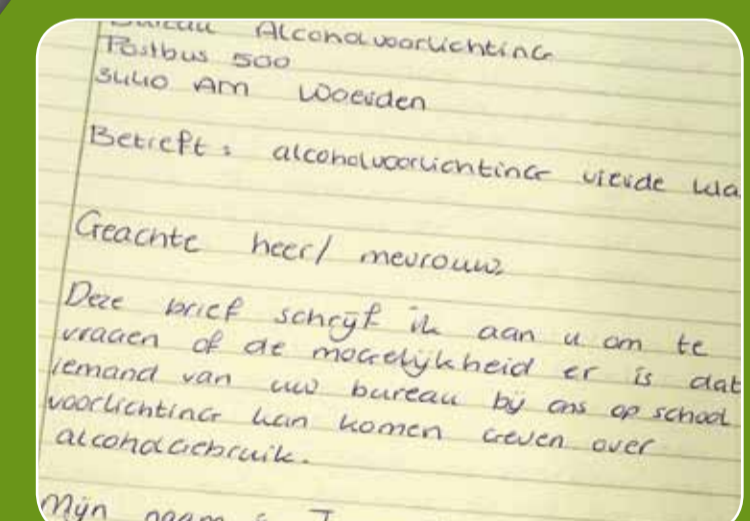 Bureau Alcoholvoorlichting
Postbus 500
3440 AM Woerden
Betreft: alcoholvoorlichting vierde kla
Geachte heer/ mevrouw,
Deze brief schrijf ik aan u om te
vragen of de mogelijkheid er is dat
iemand van uw bureau bij ons op school
voorlichting kan komen geven over
alcoholgebruik.
Mijn naam